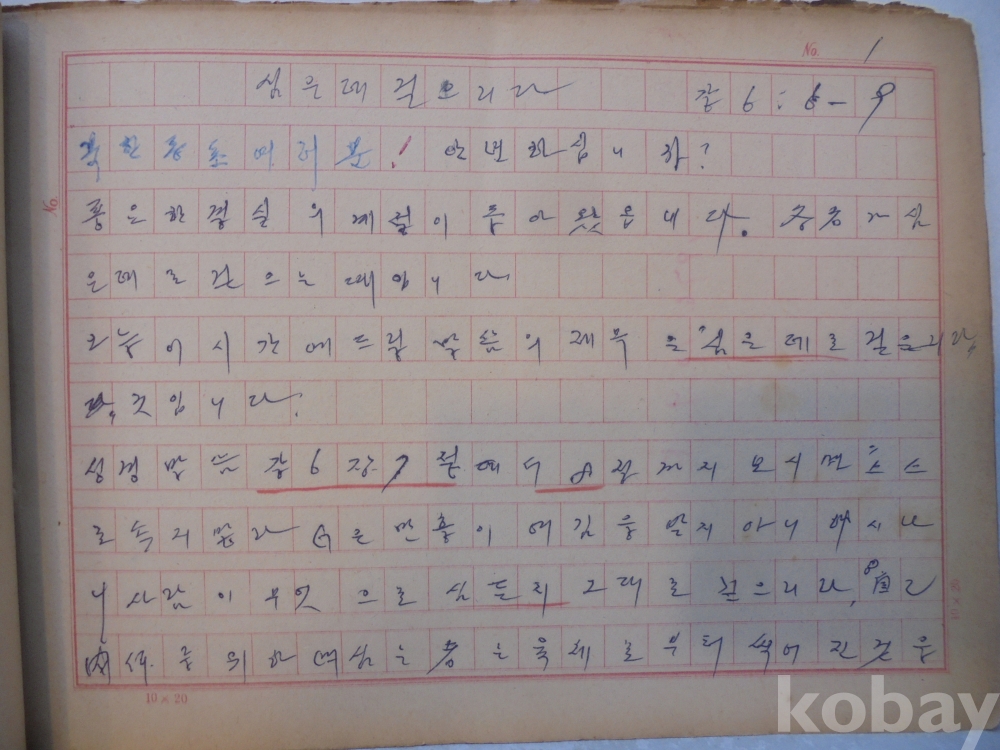 No. 1
심은데 걷으리라 갈 6:6-9
동포 여러분! 안녕하십니까?
풍은한 결실의 계절이 돌아왓읍내다. 종종자 심
은데로 걷으는때입니다
오늘 이시간에 드릴 말슴의 제목은 "심은데로 걷은리라"
란, 것입니다.
성경 말슴 갈 6장 7절에서 8절까지 보시면 "스스
로속지말라 G은 만홀이 여김을 받지아니 하시나
니사람이 무엇으로 심든지 그대로 걷으리라, 8 自己
肉体를 위하여심는者는육체로부터 썩어진것을
No.
10 × 20
10 × 20
kobay